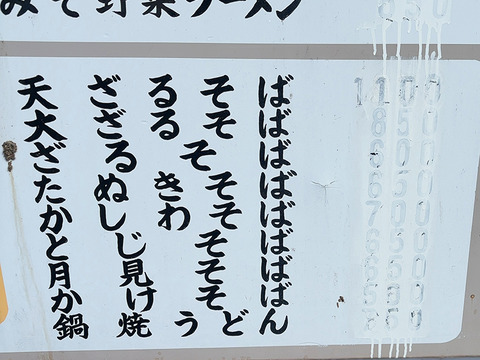 みそ野菜ラーメン
天ざるそば 1100
大ざるそば 850
ざるそば
たぬきそば
かしわそば
とじそば
月見そば
かけそば
鍋焼うどん